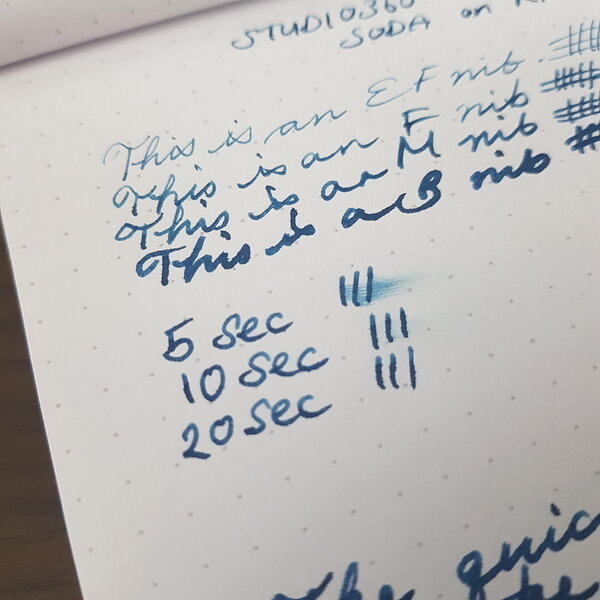 STUDIO360
SODA on
This is an EF nib
This is an F nib
This is an M nib
This is a B nib
5 sec
10 sec
20 sec
The quic